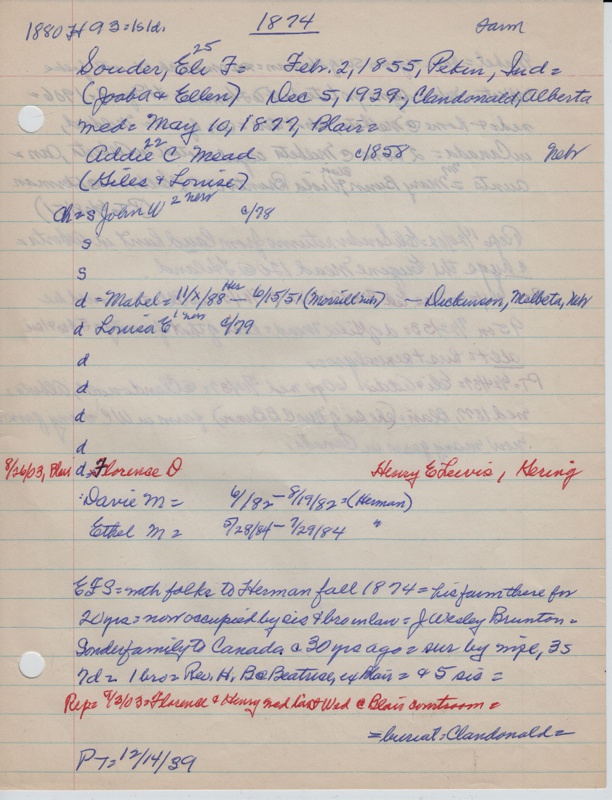 1880 H 93=1s1d. 1874 Farm
25
Souder, Eli F= Feb. 2, 1855, Pekin, Ind=
(Jooba & Ellen) Dec 5, 1939, Clandonald, Alberta
med= May 10, 1877, Blair=
22
Addie C Mead c/1858 Nebr
(Hiles & Louise)
Ch= s John W 2 nebr c/78
s
s
d = Mabel= 11/X/88 Her — 6/15/51 (Morrill nebr) — Dickinson, Melbeta, Nebr
d Louisa E 1 nebr c/79
d
d
d
d
8/26/03, Blair d= Florence O Henry E Lewis, Gering
Davie M= 6/ /82 – 8/19/82 = (Herman)
Ethel M= 5/28/84 – 7/29/84 "
EFS= with folks to Herman fall 1874= his farm there for
20 yrs= now occupied by sis & bro in law= J Wesley Brunton=
Souder family to Canada c 30 yrs ago= sur by wife, 3s
7d= 1 bro= Rev. H. B @ Beatrice, ex Blair= & 5 sis=
Rep= 9/3/03= Florence & Henry med last Wed @ Blair courtroom=
=bureat: Clandonald=
P-T= 12/14/39